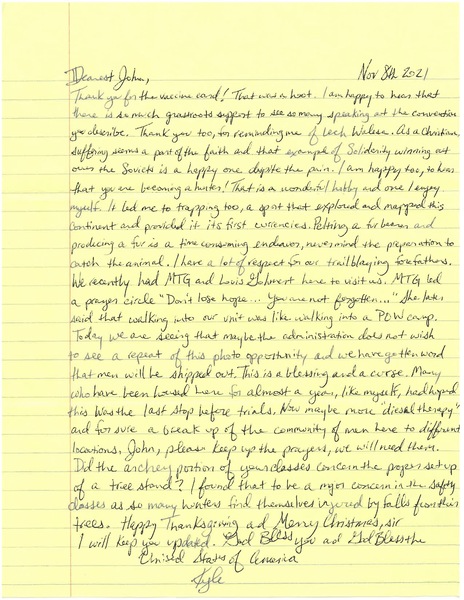 Dearest John, Nov 8th 2021
Thank you for the vaccine card! That was a hoot. I am happy to hear that
there is so much grassroots support to see so many speaking at the convention
you describe. Thank you too, for reminding me of Lech Walesa. As a Christian,
suffering seems a part of the faith and that example of Solidarity winning out
over the Soviets is a happy one despite the pain. I am happy too, to hear
that you are becoming a hunter! That is a wonderful hobby and one I enjoy
myself. It led me to trapping too, a sport that explored and mapped this
continent and provided it its first currencies. Pelting a fur bearer and
producing a fur is a time consuming endeavor, nevermind the preparation to
catch the animal. I have a lot of respect for our trailblazing forefathers.
We recently had MTG and Louis Gohmert here to visit us. MTG led
a prayer circle "Don't lose hope... You are not forgotten..." She later
said that walking into our unit was like walking into a POW camp.
Today we are seeing that maybe the administration does not wish
to see a repeat of this photo opportunity and we have gotten word
that men will be shipped out. This is a blessing and a curse. Many
who have been housed here for almost a year, like myself, had hoped
this was the last stop before trials. Now maybe more "diesel therapy"
and for sure a break up of the community of men here to different
locations. John, please keep up the prayers, we will need them.
Did the archery portion of your classes concern the proper set up
of a tree stand? I found that to be a major concern in the safety
classes as so many hunters find themselves injured by falls from their
trees. Happy Thanksgiving ad Merry Christmas, sir
I will keep you updated. God Bless you ad God Bless the
United States of America
Kyle